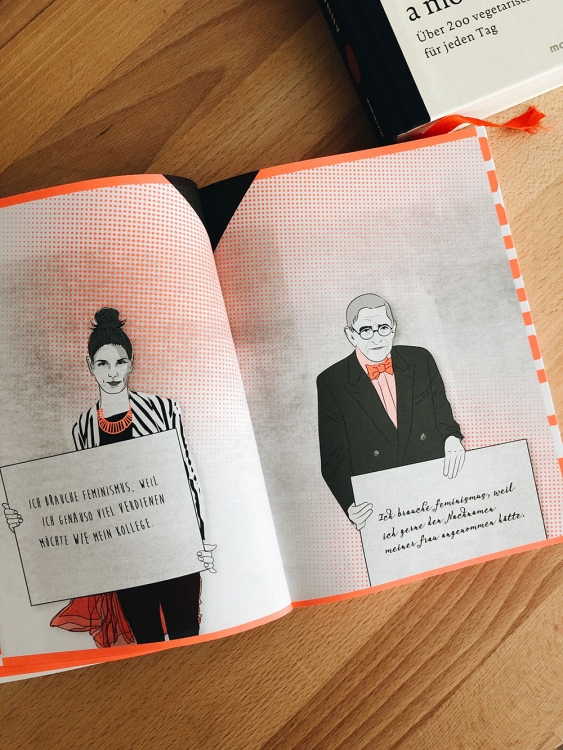 a
Über 200 vegetarisc
für jeden Tag
ICH BRAUCHE FEMINISMUS, WEIL
ICH GENAUSO VIEL VERDIENEN
MÖCHTE WIE MEIN KOLLEGE.
Ich brauche feminismus, weil
ich gerne den Nachnamen
meiner frau angenommen hätte.